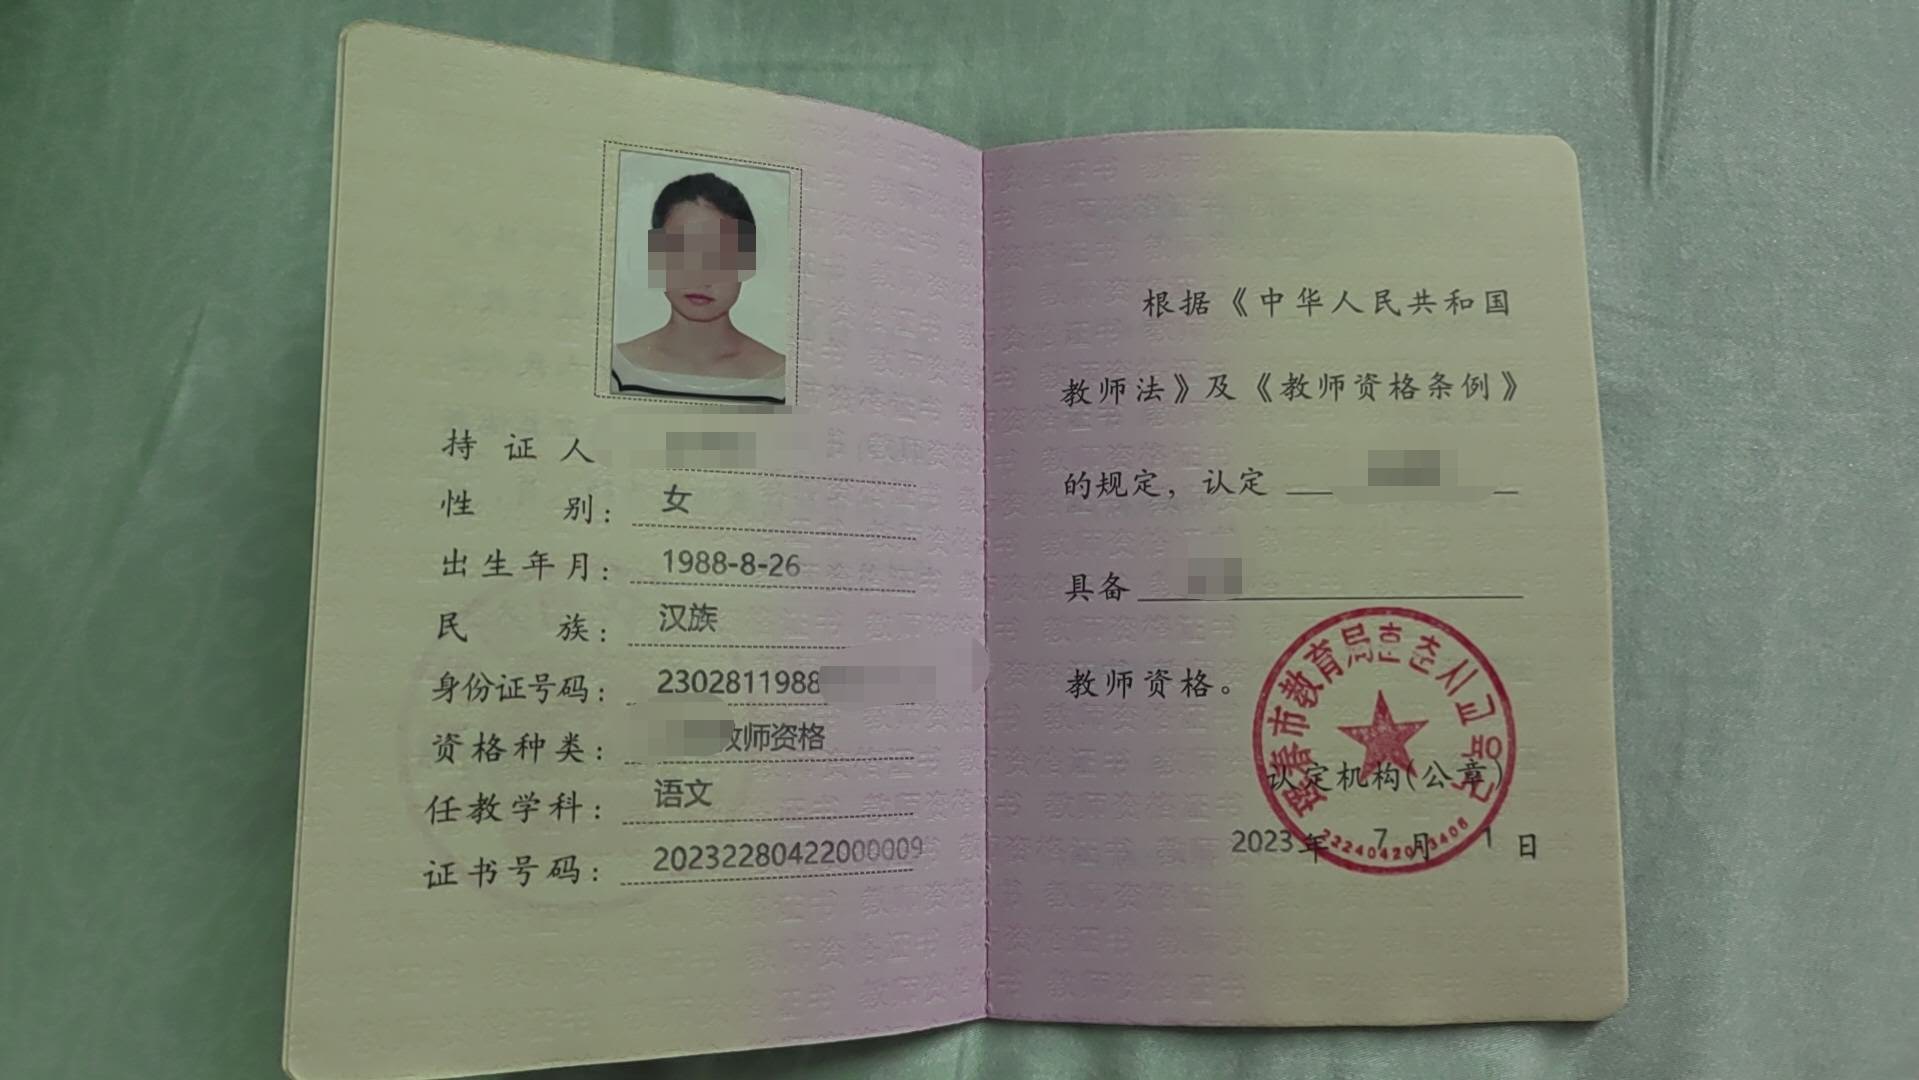 持证人
性别：女
出生年月：1988-8-26
民族：汉族
身份证号码：2302811988
资格种类：教师资格
任教学科：语文
证书号码：20232280422000009
根据《中华人民共和国
教师法》及《教师资格条例》
的规定，认定
具备
教师资格。
珲春市教育局훈춘시교육국
认定机构(公章)
2023年7月1日